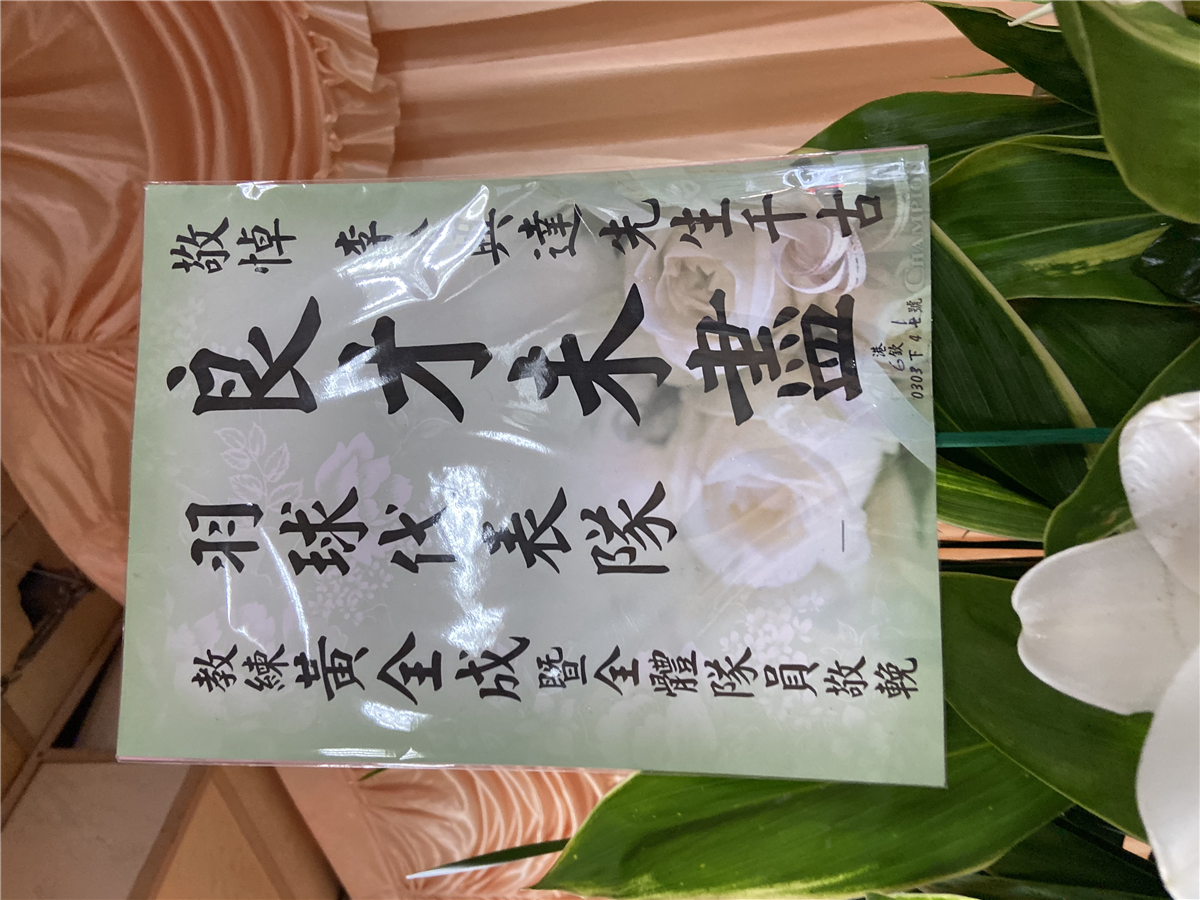 敬悼 李 達先生千古
良才未盡
羽球代表隊
教練黃全成暨全體隊員敬輓
0303下4
CHAMPION